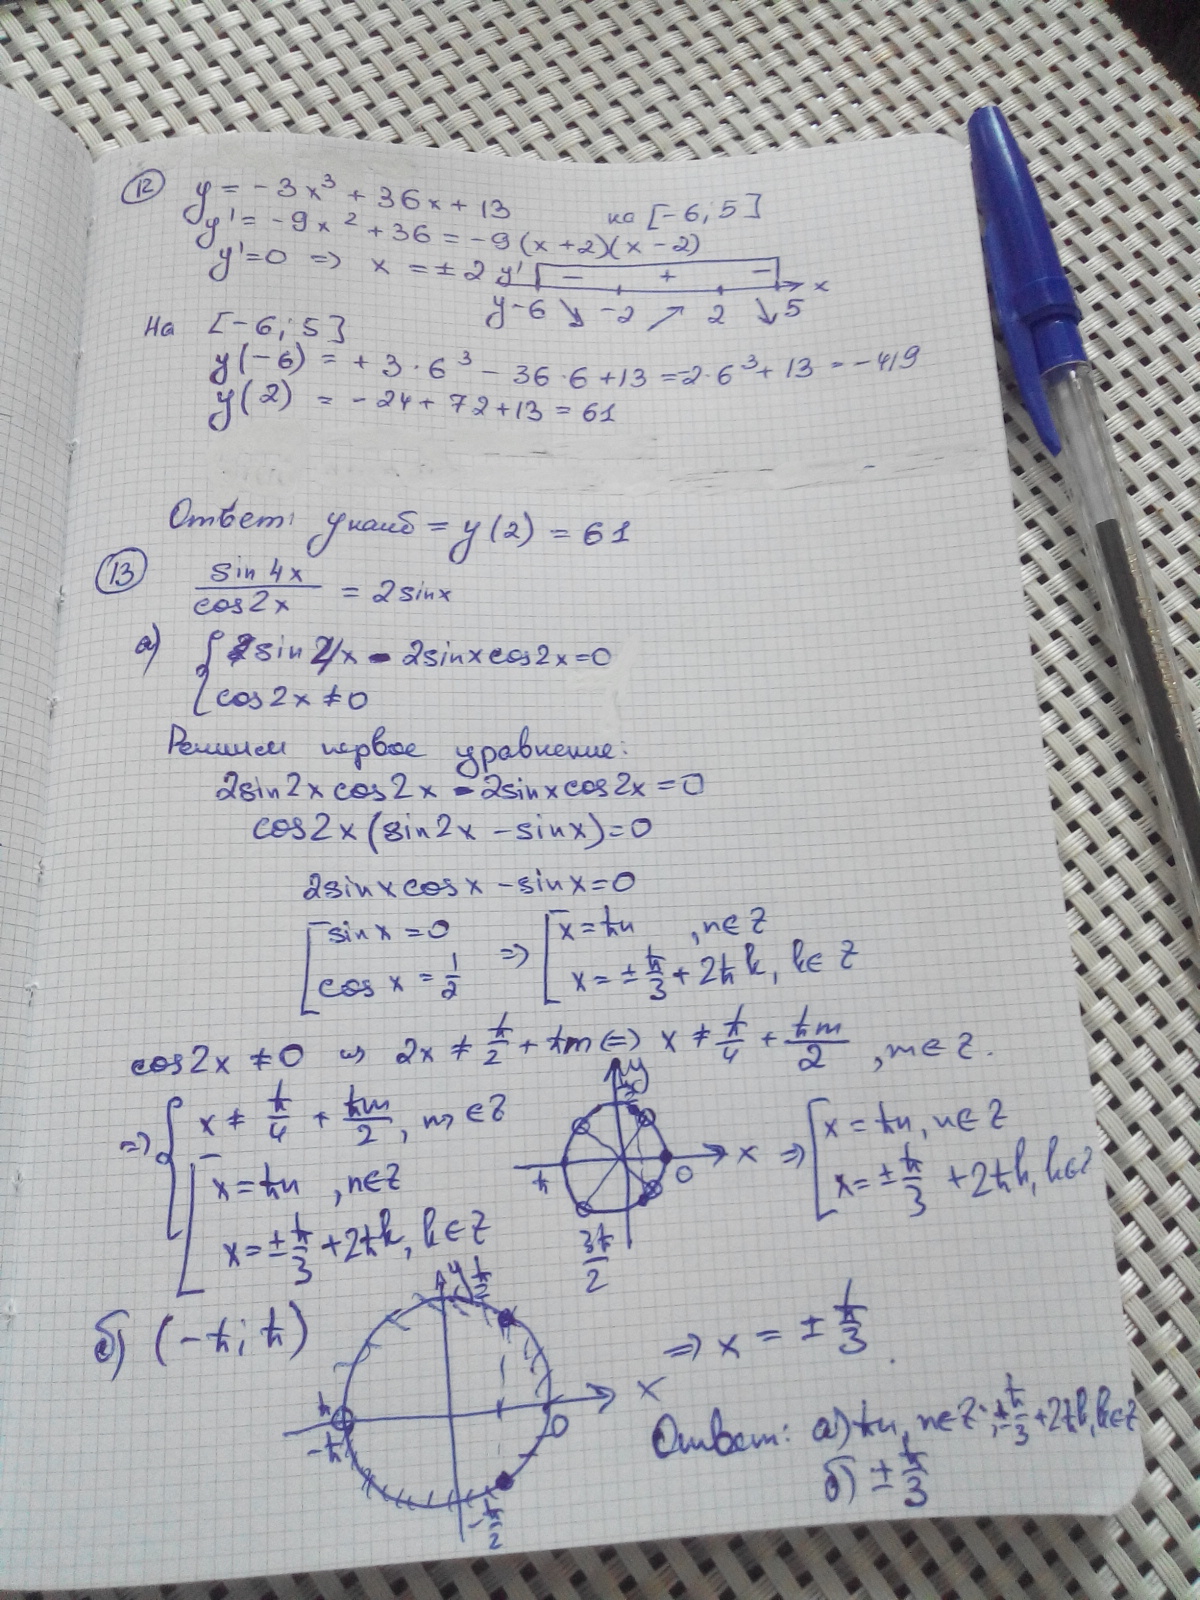 12 y = -3x³ + 36x + 13 на [-6; 5]
y' = -9x² + 36 = -9(x+2)(x-2)
y' = 0 => x = ±2 y' - + - x
y -6 ↘ -2 ↗ 2 ↘ 5
На [-6; 5]
y(-6) = +3·6³ - 36·6 + 13 = -2·6³ + 13 = -419
y(2) = -24 + 72 + 13 = 61
Ответ: y наиб = y(2) = 61
13 sin4x/cos2x = 2sinx
а) { 2sin2/x - 2sinxcos2x = 0
cos2x ≠ 0
Решим первое уравнение:
2sin2xcos2x - 2sinxcos2x = 0
cos2x(sin2x - sinx) = 0
2sinxcosx - sinx = 0
[ sinx = 0 => [ x = πn, n∈Z
cosx = 1/2 x = ±π/3 + 2πk, k∈Z
cos2x ≠ 0 => 2x ≠ π/2 + πm <=> x ≠ π/4 + πm/2, m∈Z.
=> { x ≠ π/4 + πm/2, m∈Z
[ x = πn, n∈Z
x = ±π/3 + 2πk, k∈Z
y
π 0 x
3π/2
=> [ x = πn, n∈Z
x = ±π/3 + 2πk, k∈Z
б) (-π; π)
y π/2
π -π 0 x
-π/2
=> x = ±π/3.
Ответ: а) πn, n∈Z; ±π/3 + 2πk, k∈Z
б) ±π/3